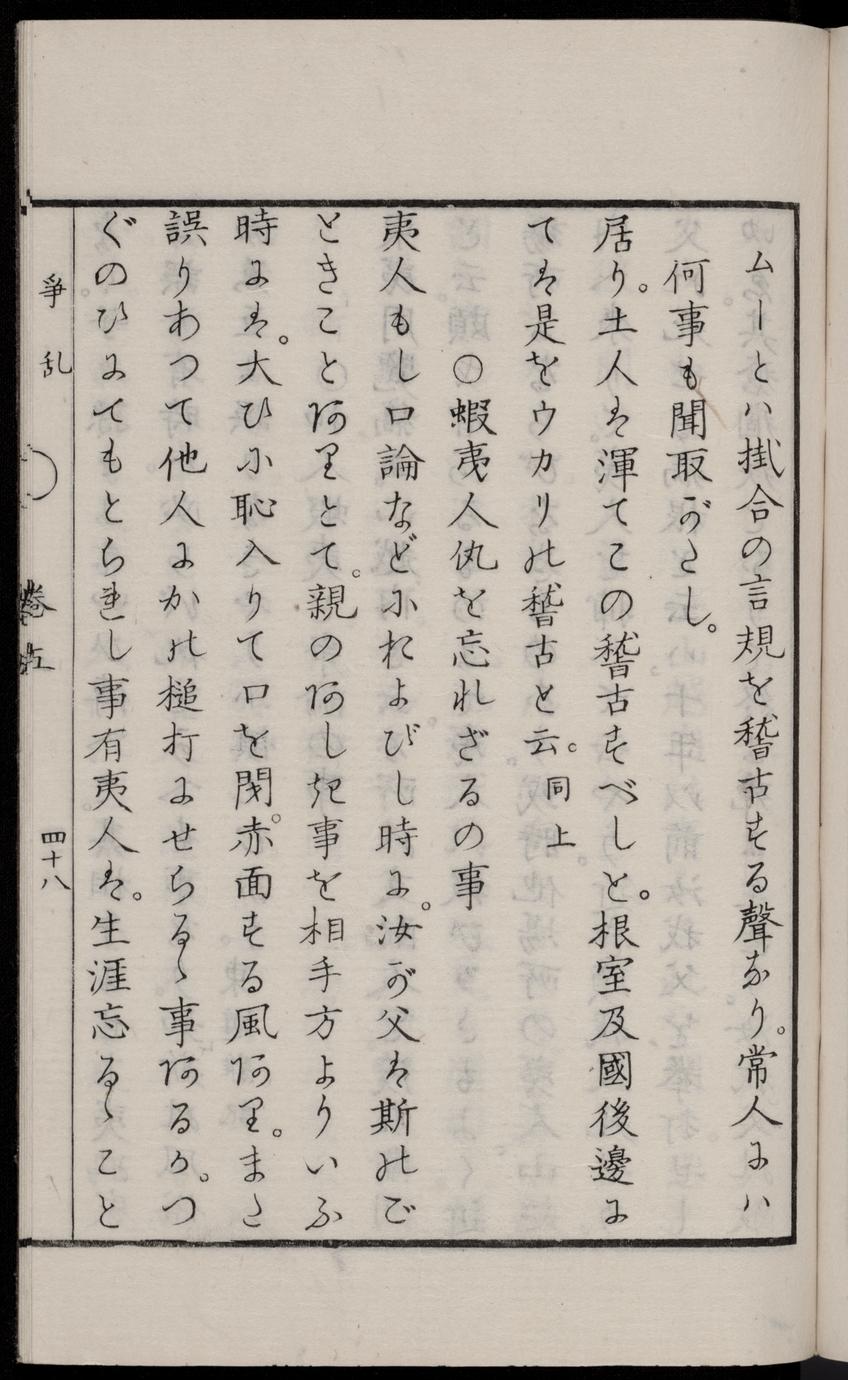 ムーとハ掛合の言規を稽古する聲なり。常人にハ
何事も聞取がたし。
居り。土人は渾てこの稽古すべしと。根室及國後邊に
ては是をウカリの稽古と云。同上
〇蝦夷人仇を忘れざるの事
夷人もし口論などにおよびし時に。汝が父は斯のご
ときことありとて。親のあしき事を相手方よりいふ
時には。大ひに恥入りて口を閉。赤面する風あり。また
誤りあつて他人にかの槌打にせらるゝ事あるか。つ
ぐのひにてもとられし事有夷人は。生涯忘るゝこと
爭乱
巻五
四十八